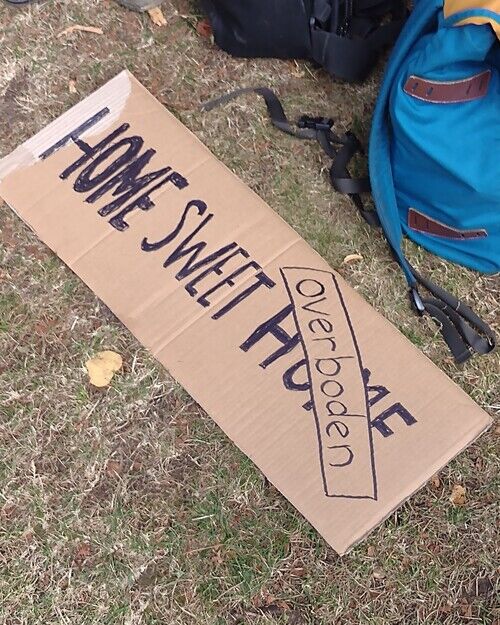 HOME SWEET HOME
overboden